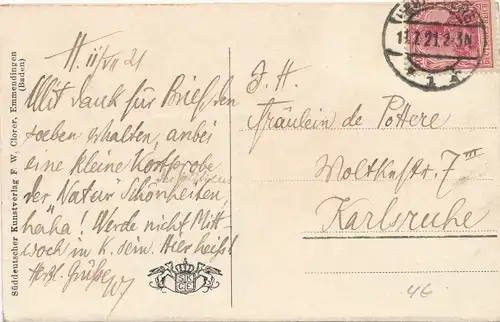 Süddeutscher Kunstverlag F. W. Clorer, Emmendingen
(Baden)
H. 11/VII 21
Mit Dank für Brief, den
soeben erhalten, anbei
eine kleine Kostprobe
der "Natur" Schönheiten,
haha! Werde nicht Mitt-
woch in K. sein. Hier heiß!
Herzl. Grüße
F. H.
Fräulein de Pottere
Moltkestr. 7 III
Karlsruhe
46